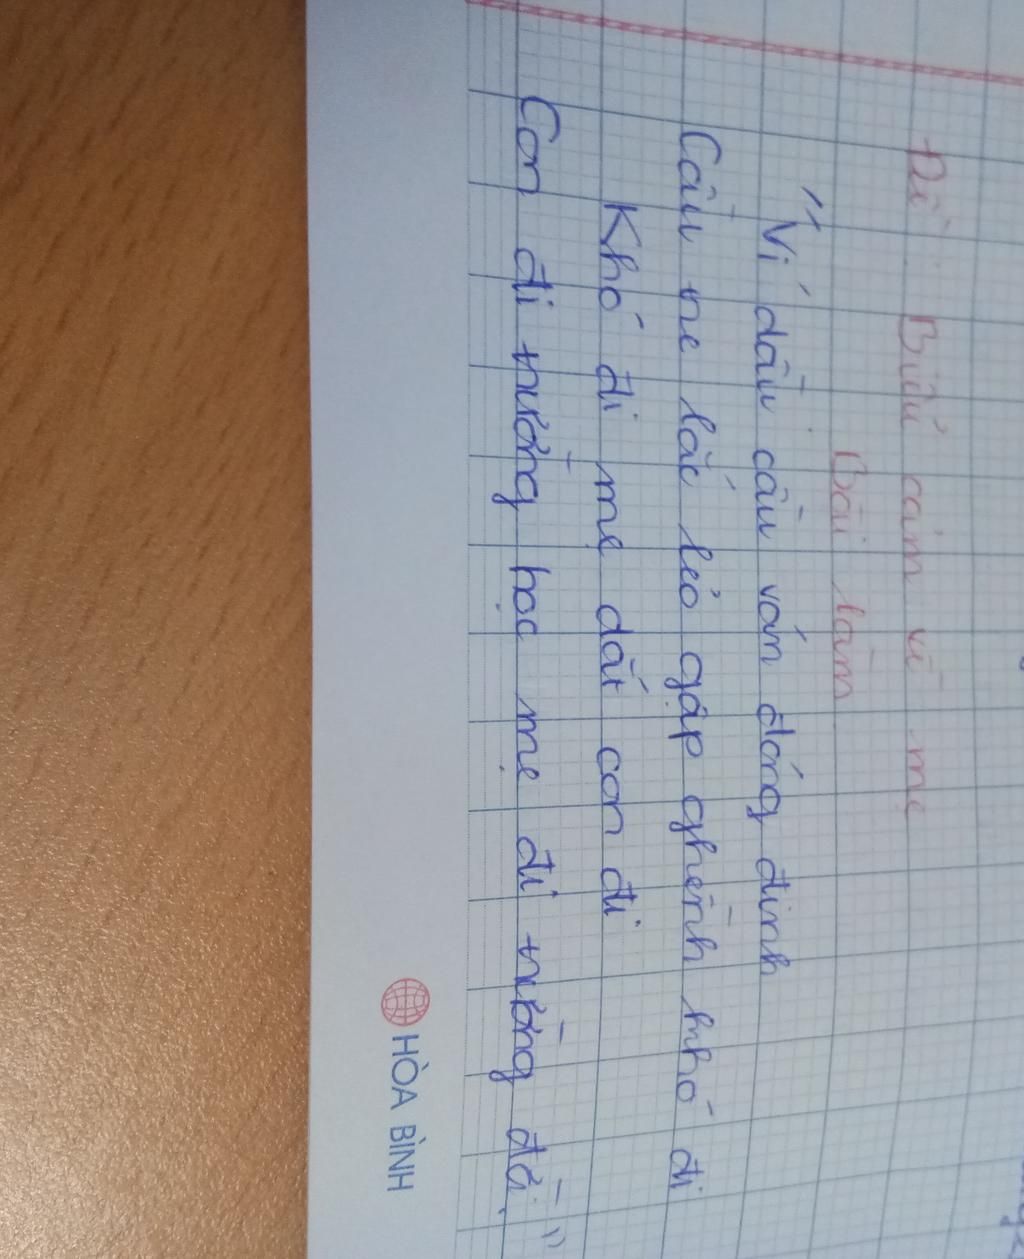 Đề: Biểu cảm về mẹ
Bài làm
"Ví dầu cầu ván đóng đinh
Cầu tre lắc lẻo gập ghềnh khó đi
Khó đi mẹ dắt con đi
Con đi trường học mẹ đi trường đời."
HÒA BÌNH